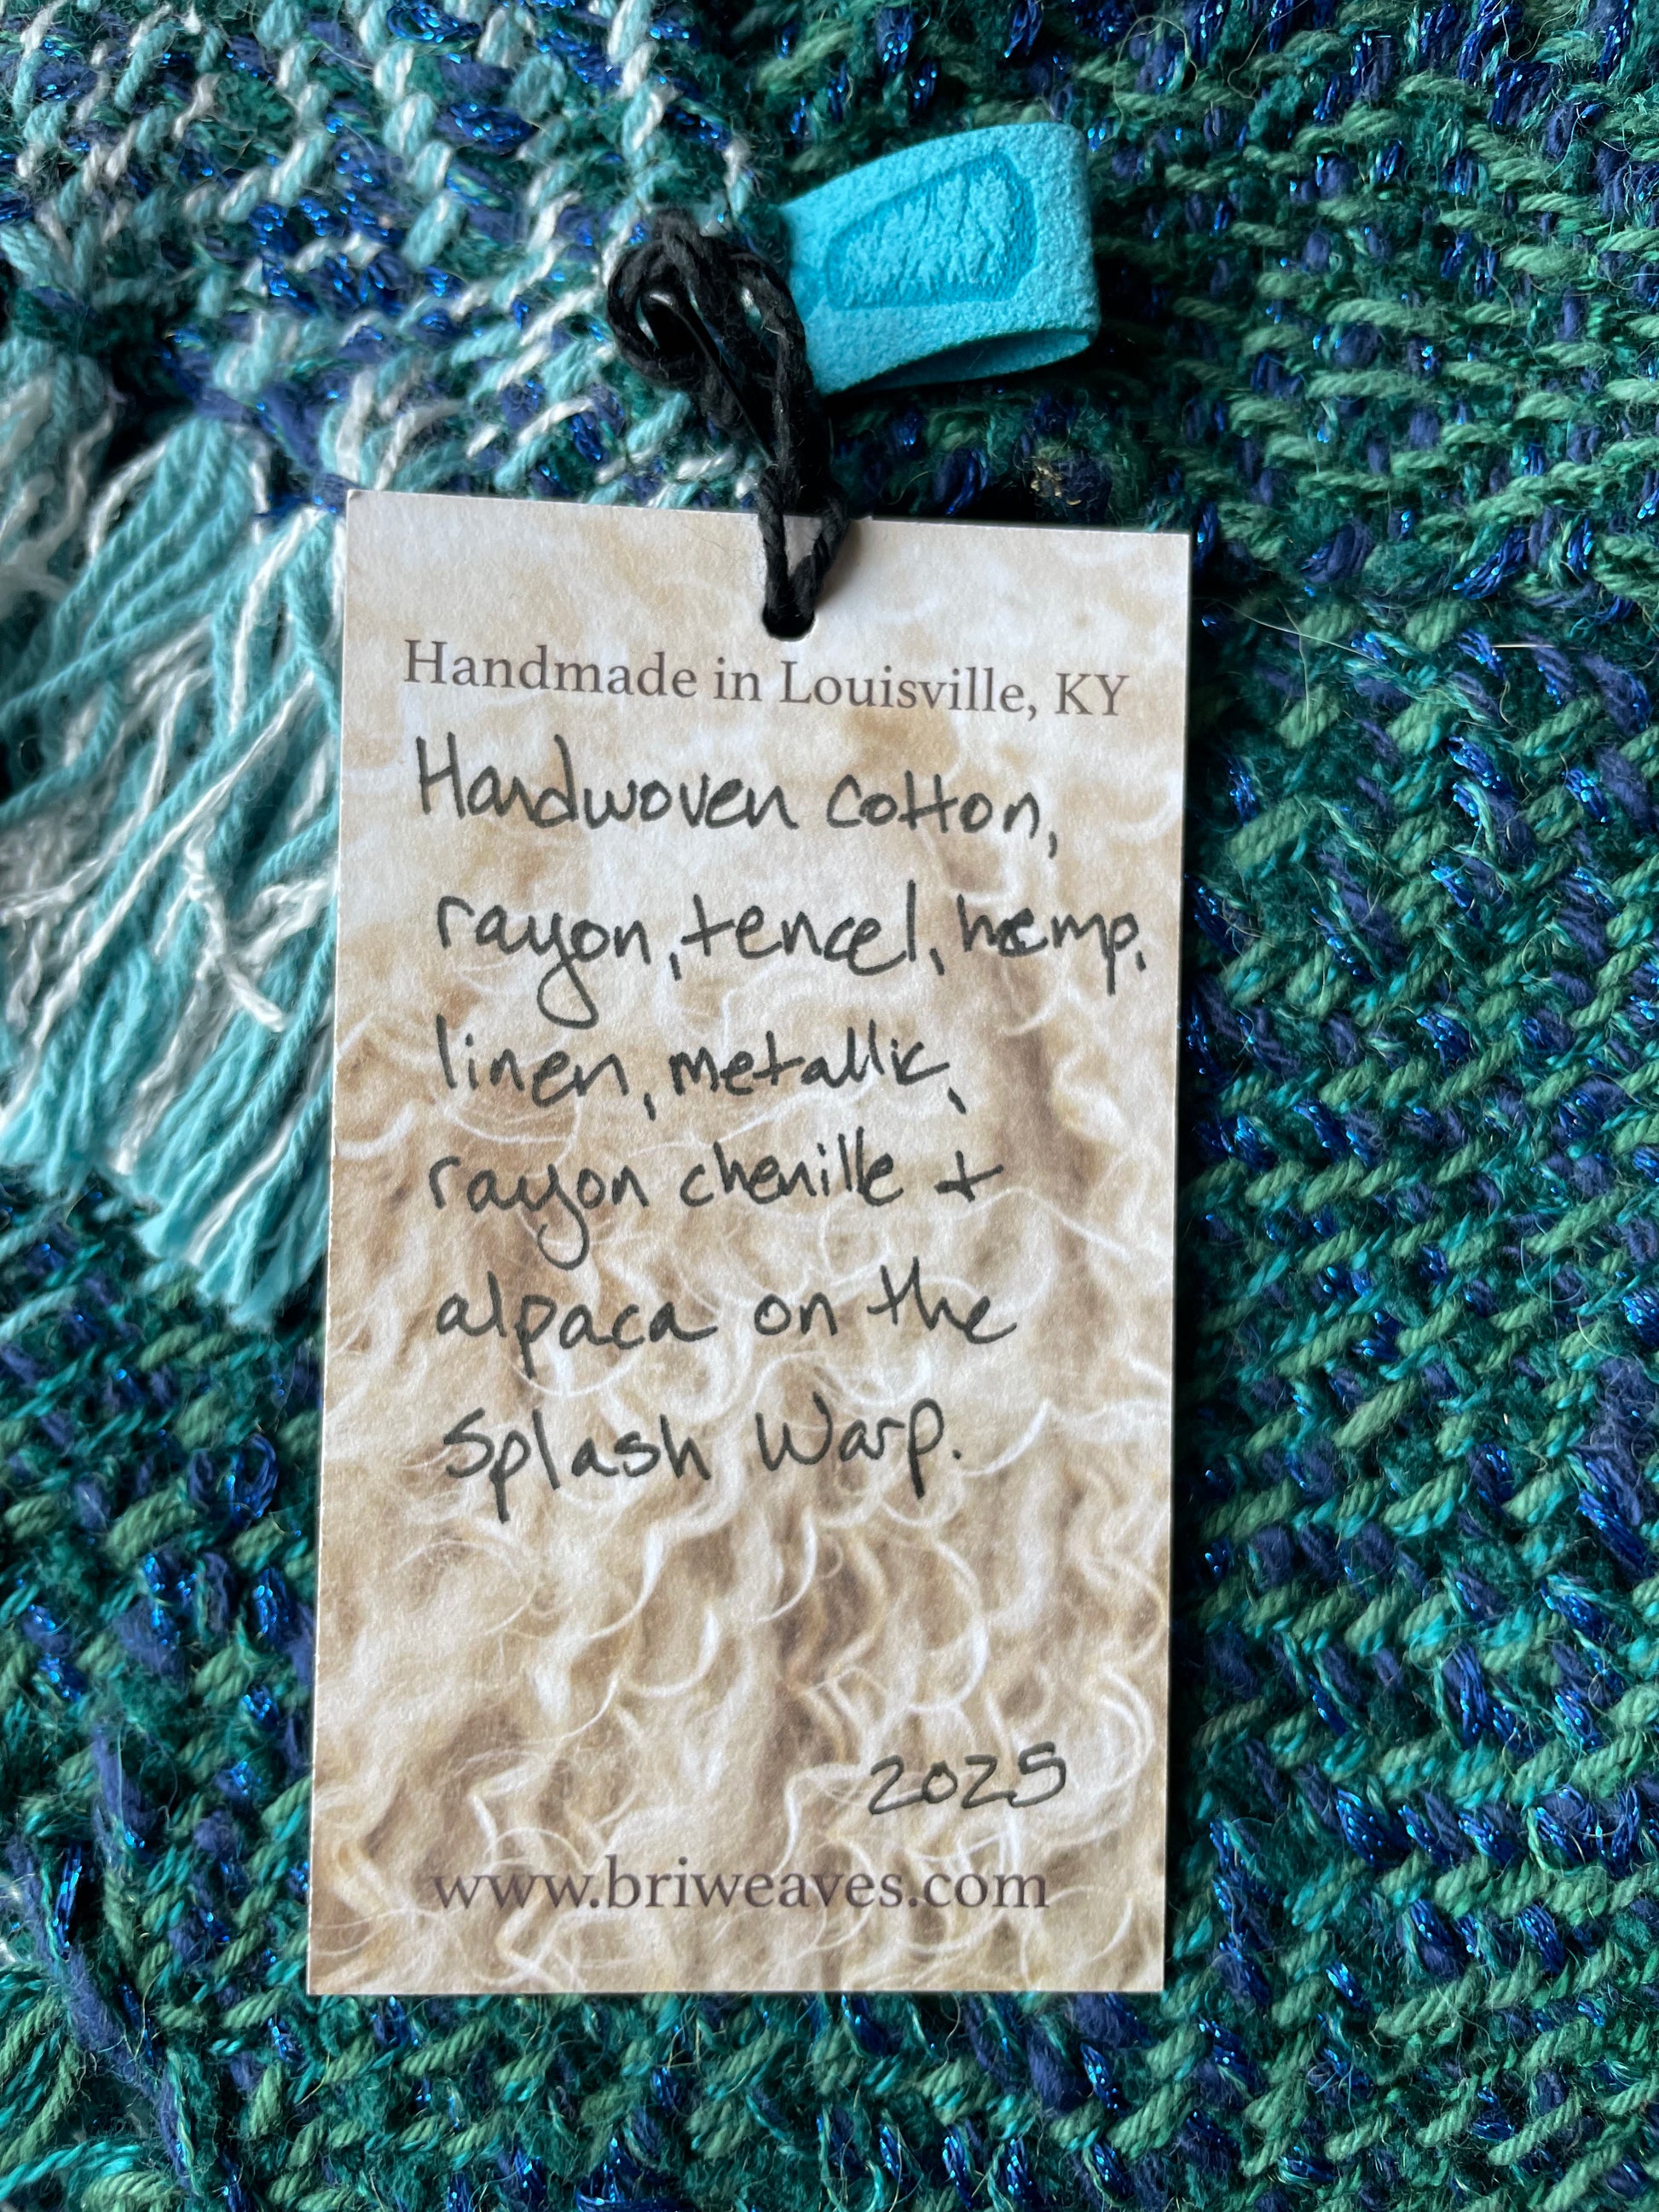 Handmade in Louisville, KY
Handwoven cotton,
rayon, tencel, hemp,
linen, metallic,
rayon chenille +
alpaca on the
Splash Warp.
2025
www.briweaves.com